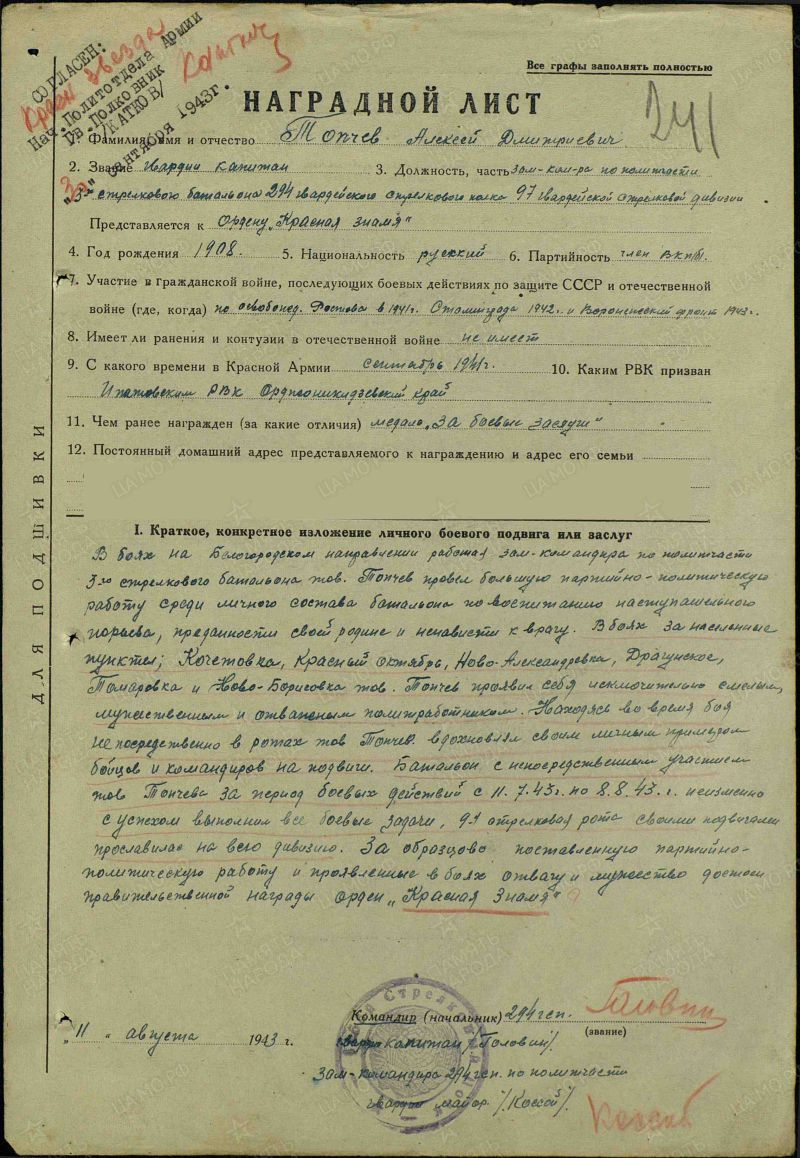 СОГЛАСЕН:
Нач. Политотдела Армии
Гв. Полковник
/КАТКОВ/
"3" сентября 1943г.
Орден звезда
Все графы заполнять полностью
НАГРАДНОЙ ЛИСТ
241
1. Фамилия, имя и отчество Топчев Алексей Дмитриевич
2. Звание Гвардии капитан 3. Должность, часть зам-ком-ра по политчасти
3го стрелкового батальона 294 гвардейского стрелкового полка 97 гвардейской стрелковой дивизии
Представляется к Ордену „Красная знамя"
4. Год рождения 1908. 5. Национальность русский 6. Партийность член ВКП/б.
7. Участие в гражданской войне, последующих боевых действиях по защите СССР и отечественной
войне (где, когда) по освобожд. Ростова в 1941г. Сталинграда 1942г. и Воронежский фронт 1943г.
8. Имеет ли ранения и контузии в отечественной войне не имеет
9. С какого времени в Красной Армии сентябрь 1941г. 10. Каким РВК призван
Ипатовским РВК Орджоникидзевский край
11. Чем ранее награжден (за какие отличия) медаль „За боевые заслуги"
12. Постоянный домашний адрес представляемого к награждению и адрес его семьи
ДЛЯ ПОДШИВКИ
I. Краткое, конкретное изложение личного боевого подвига или заслуг
В боях на Белогородском направлении работая зам-командира по политчасти
3го стрелкового батальона тов. Топчев провел большую партийно-политическую
работу среди личного состава батальона по воспитанию наступательного
порыва, преданности своей родине и ненависти к врагу. В боях за населенные
пункты; Кочетовка, Красный октябрь, Ново-Александровка, Драгунское,
Томаровка и Ново-Борисовка тов. Топчев проявил себя исключительно смелым,
мужественным и отважным политработником. Находясь во время боя
непосредственно в ротах тов Топчев вдохновлял своим личным примером
бойцов и командиров на подвиги. Батальон с непосредственным участием
тов Топчева за период боевых действий с 11.7.43г. по 8.8.43.г. неизменно
с успехом выполнил все боевые задачи, 9я стрелковая рота своими подвигами
прославилась на всю дивизию. За образцово поставленную партийно-
политическую работу и проявленные в боях отвагу и мужество достоин
правительственной награды орден „Красная Знамя"
Командир (начальник) 294 гсп. Головин
(звание)
„11" августа 1943 г. гвардии капитан /Головин/.
Зам-командира 294 гсп. по политчасти
гвардии майор /Коссой/.